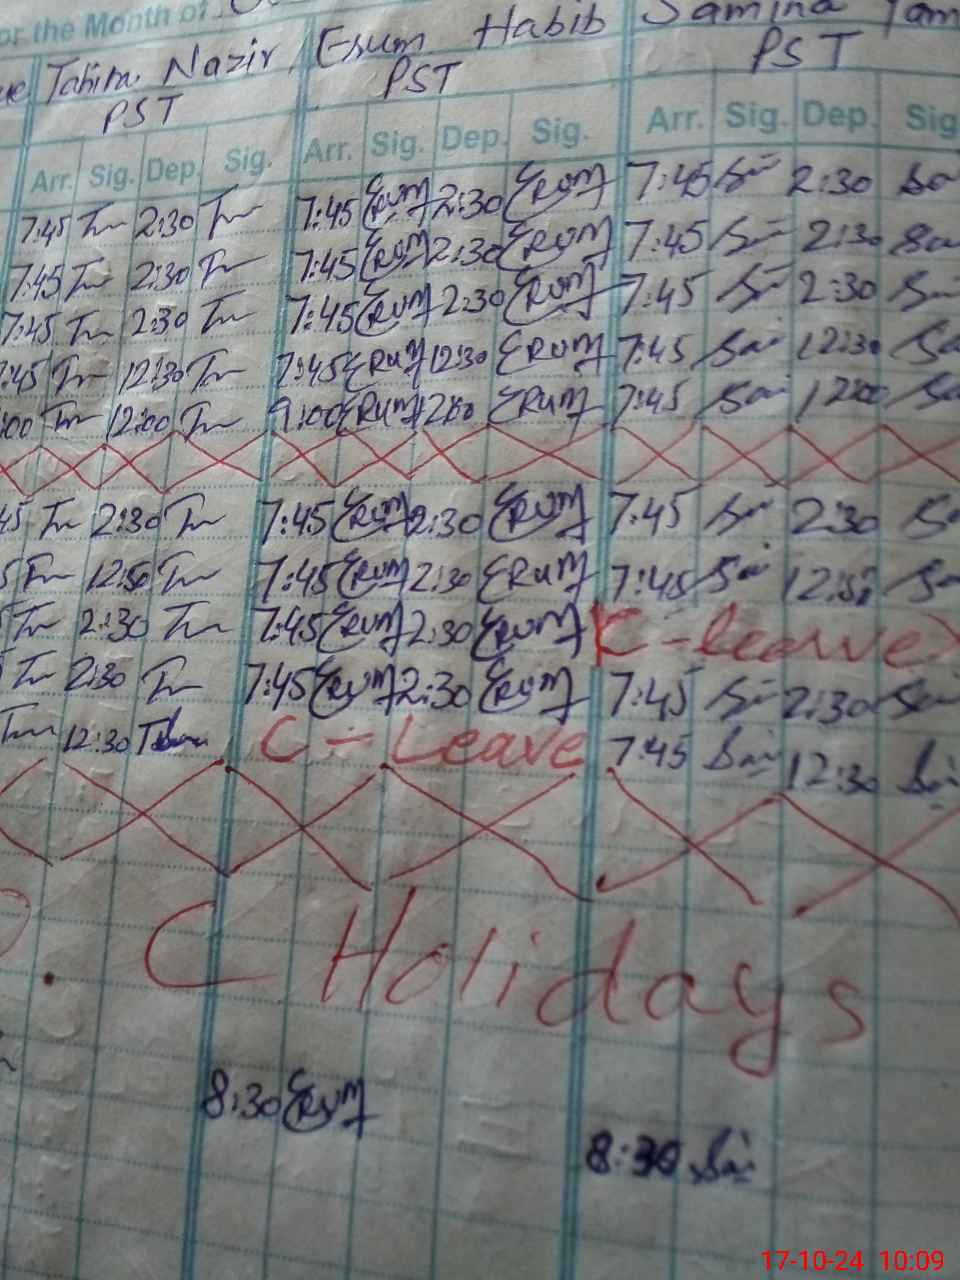 or the Month of
Tahira Nazir Erum Habib Samina
PST PST PST
Arr. Sig. Dep. Sig. Arr. Sig. Dep. Sig. Arr. Sig. Dep. Sig
7:45 Tn 2:30 Tn 7:45 ERUM 2:30 ERUM 7:45 Sai 2:30 Sa
7:45 Tn 2:30 Tn 7:45 ERUM 2:30 ERUM 7:45 Sai 2:30 Sa
7:45 Tn 2:30 Tn 7:45 ERUM 2:30 ERUM 7:45 Sai 2:30 Sa
:45 Tn 12:30 Tn 7:45 ERUM 12:30 ERUM 7:45 Sai 12:30 Sa
:00 Tn 12:00 Tn 9:00 ERUM 1200 ERUM 7:45 Sai 12:00 Sa
45 Tn 2:30 Tn 7:45 ERUM 2:30 ERUM 7:45 Sai 2:30 Sa
5 Tn 12:50 Tn 7:45 ERUM 2:30 ERUM 7:45 Sai Sa
Tn 2:30 Tn 7:45 ERUM 2:30 ERUM C-leave
Tn 2:30 Tn 7:45 ERUM 2:30 ERUM 7:45 Sai 2:30 Sai
Tn 12:30 C-Leave 7:45 Sai 12:30 Sai
C Holidays
8:30 ERUM
8:30 Sai
17-10-24 10:09